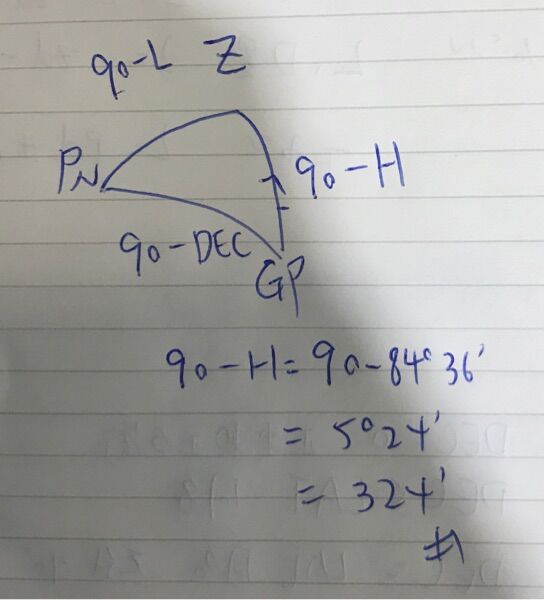 90-L Z
PN
90-H
90-DEC
GP
90-H=90-84°36'
= 5°24'
= 324'
#